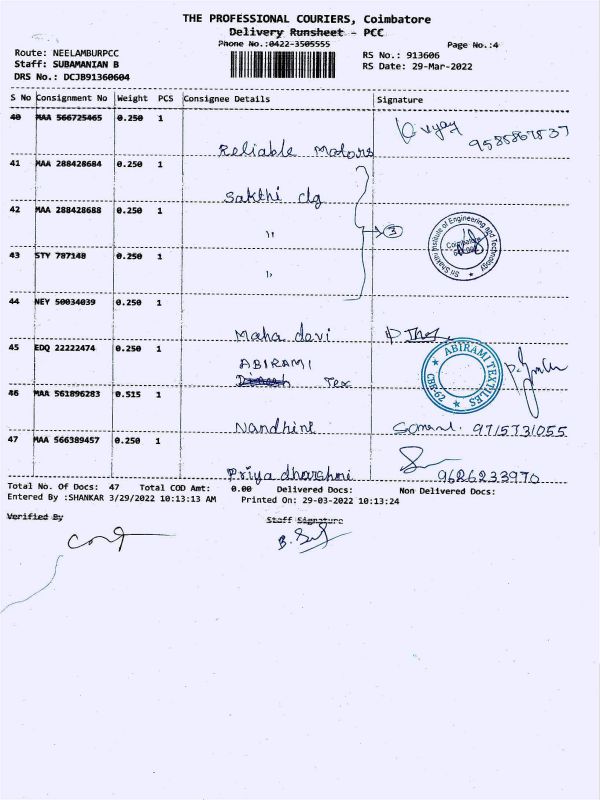 THE PROFESSIONAL COURIERS, Coimbatore
Delivery Runsheet - PCC
Phone No.:0422-3505555
Page No.:4
Route: NEELAMBURPCC
Staff: SUBAMANIAN B
DRS No.: DCJB91360604
RS No.: 913606
RS Date: 29-Mar-2022
S No Consignment No Weight PCS Consignee Details Signature
40 MAA 566725465 0.250 1
Reliable Motors Vijay 9585867837
41 MAA 288428684 0.250 1
Sakthi clg
42 MAA 288428688 0.250 1
" 3
Sri Shakthi Institute of Engineering and Technology
Coimbatore
43 STY 787148 0.250 1
"
44 NEY 50034039 0.250 1
Maha devi
45 EDQ 22222474 0.250 1
ABIRAMI
Tex
ABIRAMI TEXTILES
CBE-62
46 MAA 561896283 0.515 1
Nandhini 9715731055
47 MAA 566389457 0.250 1
Priya dharshni 9626233970
Total No. Of Docs: 47 Total COD Amt: 0.00 Delivered Docs: Non Delivered Docs:
Entered By :SHANKAR 3/29/2022 10:13:13 AM Printed On: 29-03-2022 10:13:24
Verified By Staff Signature